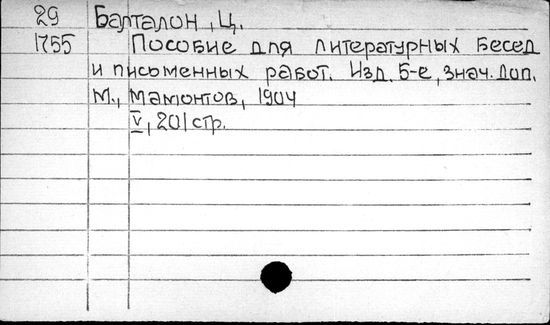 29 Балталон, Ц.
1755 Пособие для литературных бесед
и письменных работ. Изд. 5-е, знач. доп.
М., Мамонтов, 1904
V, 201 стр.